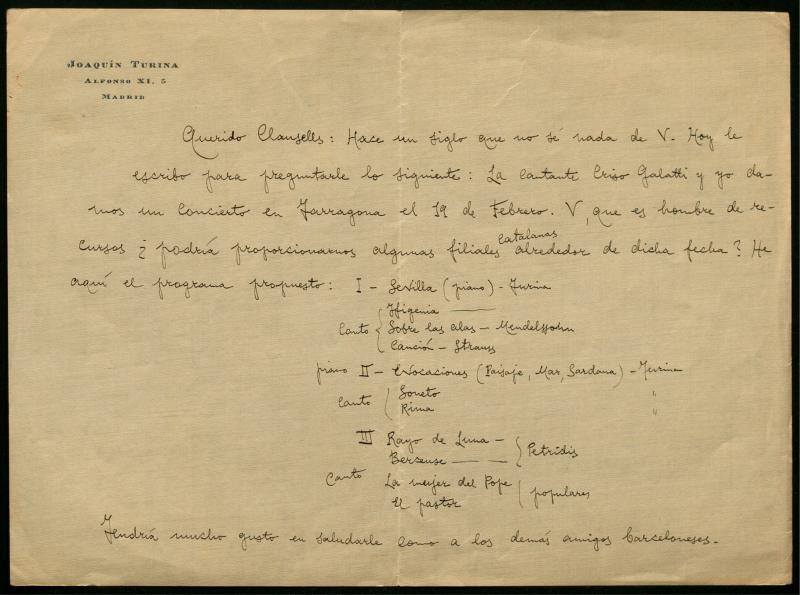 JOAQUÍN TURINA
ALFONSO XI, 5
MADRID
Querido Clausells: Hace un siglo que no sé nada de V. Hoy le
escribo para preguntarle lo siguiente: La cantante Criso Galatti y yo da-
mos un concierto en Tarragona el 19 de Febrero. V, que es hombre de re-
catalanas
cursos ¿podría proporcionarnos algunas filiales alrededor de dicha fecha? He
aquí el programa propuesto: I - Sevilla (piano) - Turina
Ifigenia ———
Canto { Sobre las alas - Mendelssohn
Canción - Strauss
piano II - Evocaciones (Paisaje, Mar, Sardana) - Turina
Canto { Soneto "
Rima "
III Rayo de Luna -
Berseuse ——— } Petridis
Canto La mujer del Pope
El pastor } populares
Tendría mucho gusto en saludarle como a los demás amigos barceloneses.